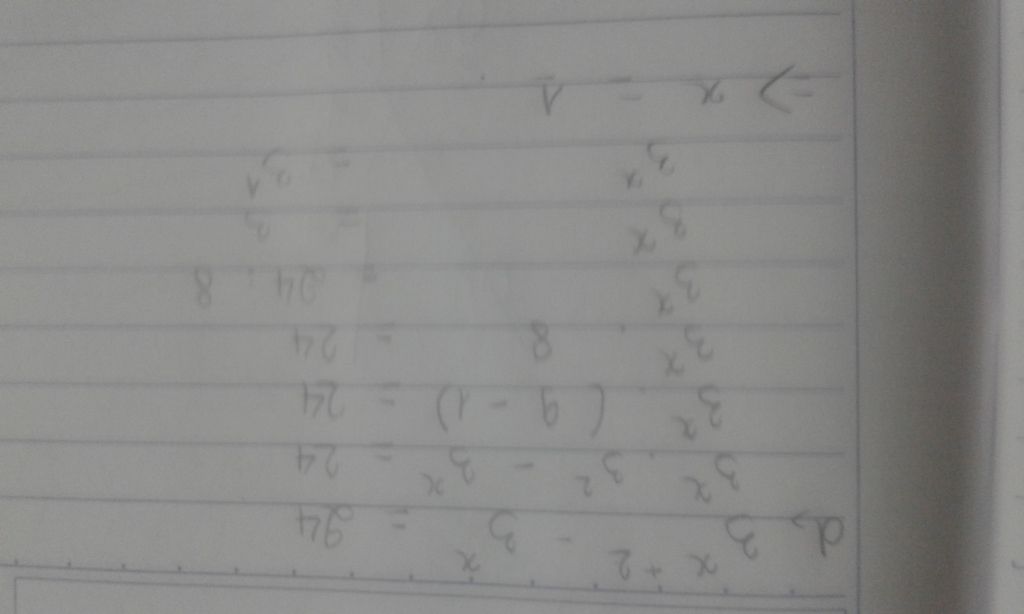 d, 3^{x+2} - 3^x = 24
3^x . 3^2 - 3^x = 24
3^x . (9 - 1) = 24
3^x . 8 = 24
3^x = 24 : 8
3^x = 3
3^x = 3^1
=> x = 1